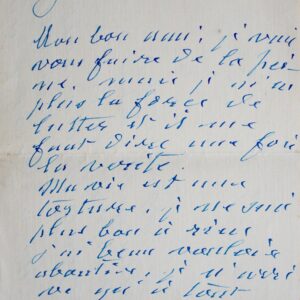 Mon bon ami, je vais
vous faire de la pei
ne. mais je n'ai
plus la force de
lutter et il me
faut dire une fois
la vérité.
Ma vie est une
torture. je ne suis
plus bon à rien
j'ai beau vouloir
aboutir, je n'arri
ve qu'à tout